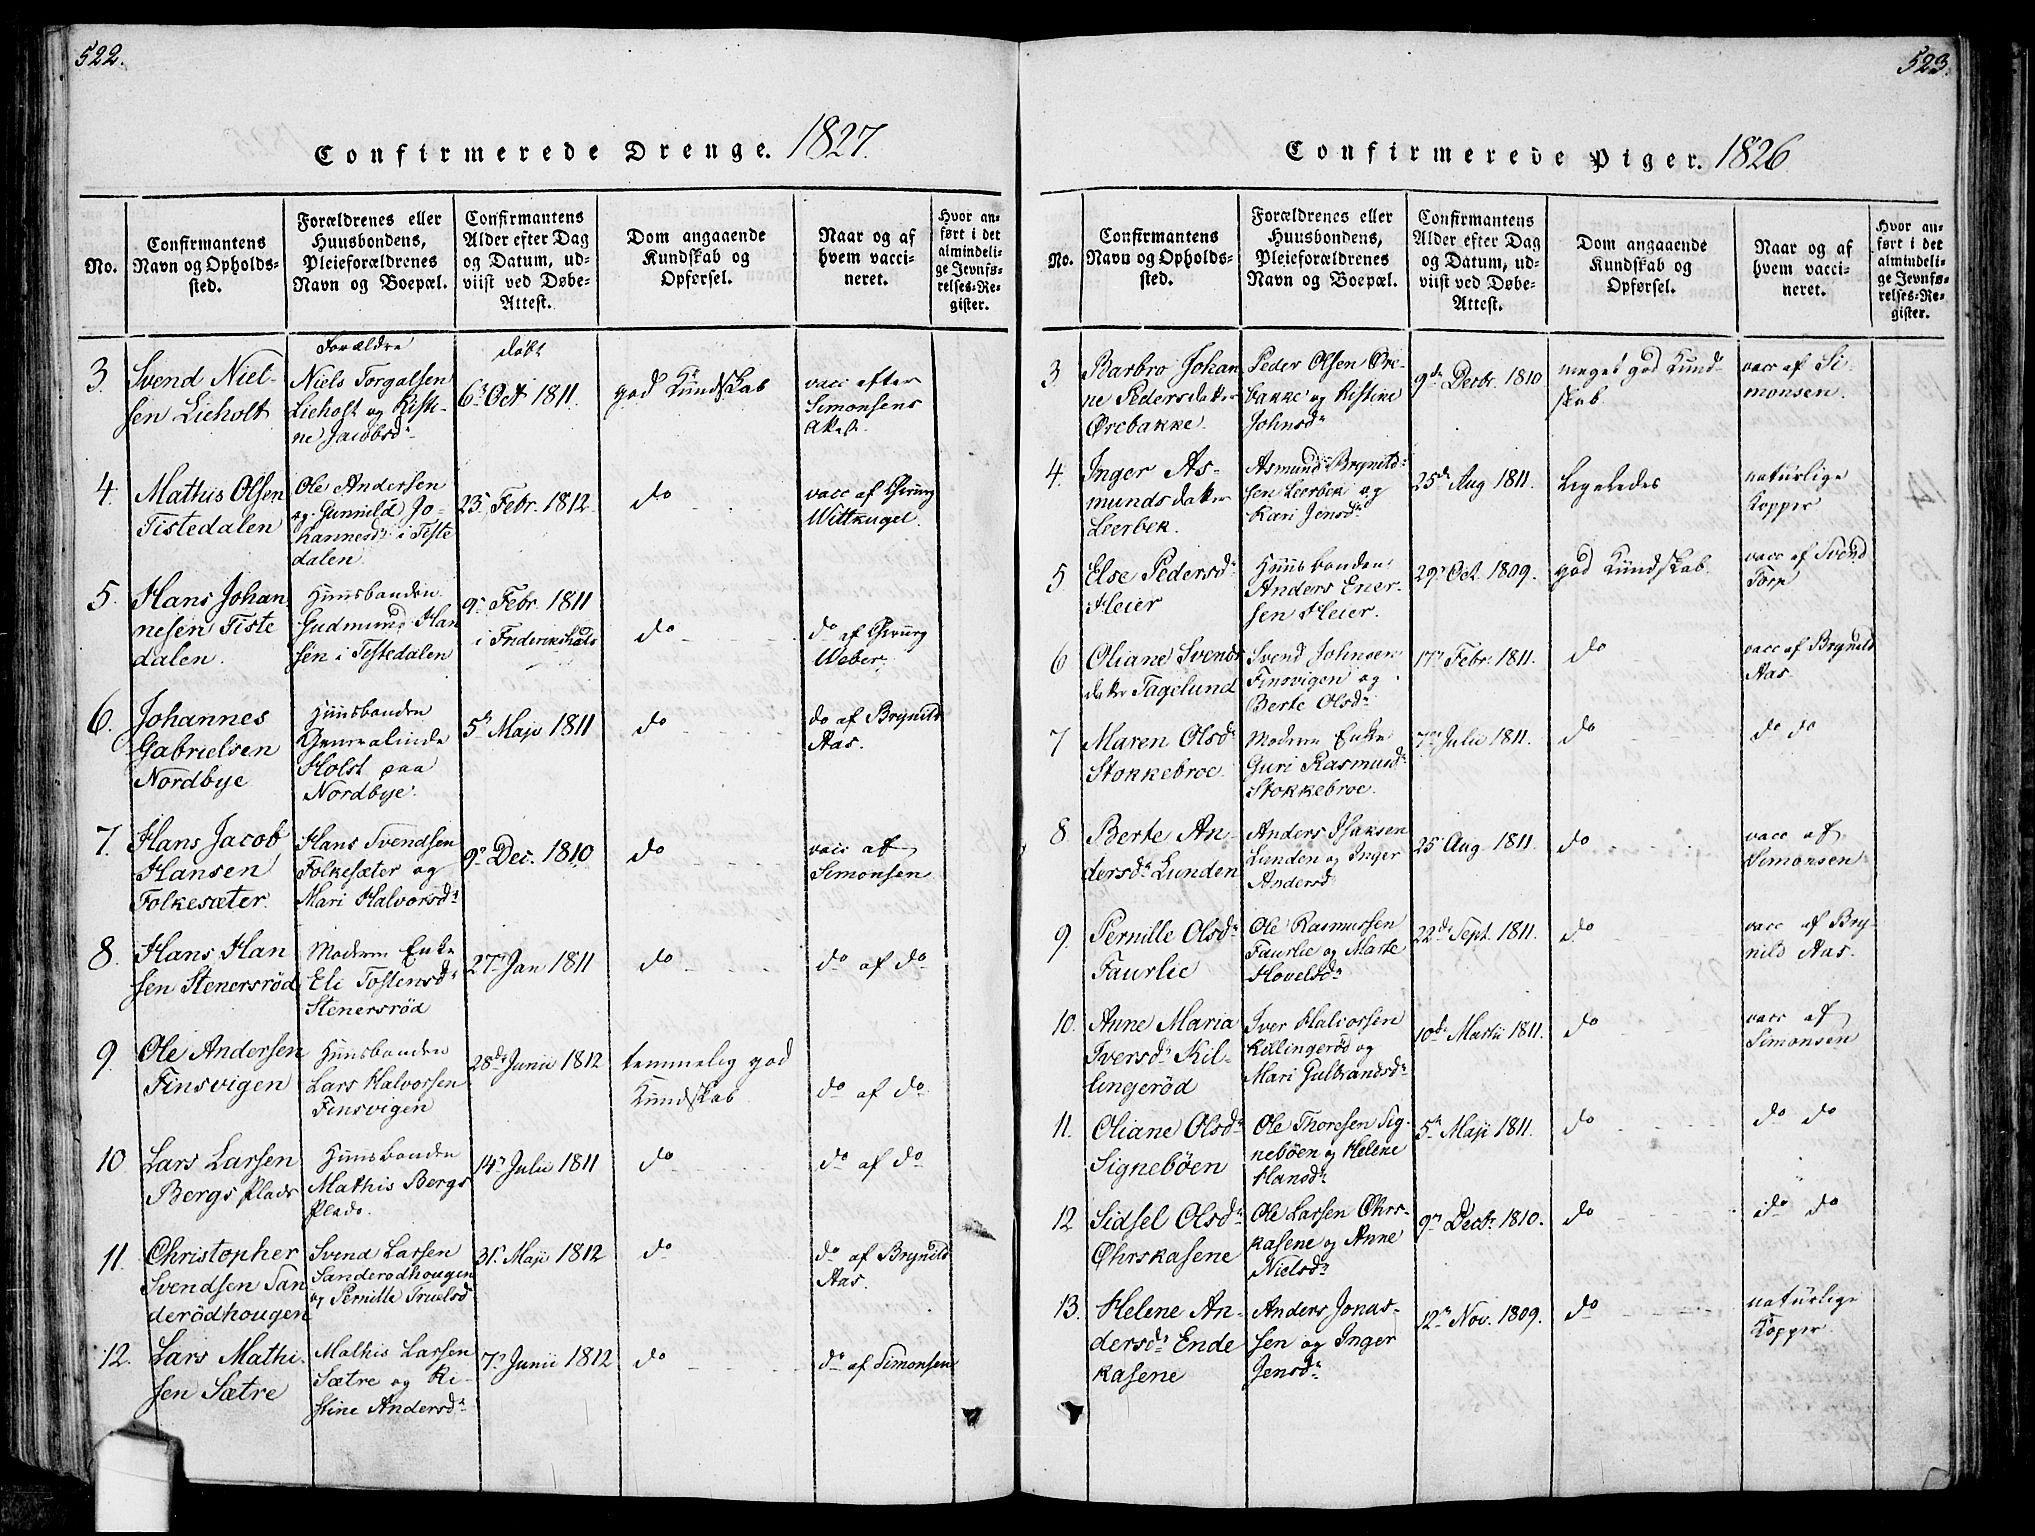 522.
Confirmerede Drenge. 1827.
No.
Confirmantens
Navn og Opholds-
sted.
Forældrenes eller
Huusbondens,
Pleieforældrenes
Navn og Boepæl.
Confirmantens
Alder efter Dag
og Datum, ud-
viist ved Døbe-
Attest.
Dom angaaende
Kundskab og
Opførsel.
Naar og af
hvem vacci-
neret.
Hvor an-
ført i det
almindeli-
ge Jevnfø-
relses-Re-
gister.
3.
Svend Niel-
sen Lieholt
Forældre
Niels Torgalsen
Lieholt og Kisti-
ne Jacobsd.
døbt
6 Oct 1811.
god Kundskab
vacc efter
Simonsens
Att.
4.
Mathis Olsen
Tistedalen
Ole Andersen
og Gunnild Jo-
hannesd. i Tiste
dalen.
23. Febr. 1812.
do
vacc af Chirurg
Wittkugel.
5.
Hans Johan
nesen Tiste
dalen.
Huusbonden
Gudmund Han
sen i Tistedalen
9 Febr. 1811
i Friderikshald
do
do af Chirurg
Weber.
6.
Johannes
Gabrielsen
Nordbye
Huusbonden
Generalinde
Holst paa
Nordbye.
5 Maji 1811
do
do af Brynild
Aas.
7.
Hans Jacob
Hansen
Folkesæter.
Hans Svendsen
Folkesæter og
Mari Halvorsd.
9 Dec. 1810
do
vacc af
Simonsen
8.
Hans Han
sen Stenersrød
Moderen Enke
Eli Tostensd.
Stenersrød
27 Jan 1811
do
do af do
9.
Ole Andersen
Finsvigen
Huusbonden
Lars Halvorsen
Finsvigen
28 Junii 1812
temmelig god
Kundskab
do af do
10
Lars Larsen
Bergs Plads
Huusbonden
Mathis Bergs
Plads.
14 Julii 1811
do
do af do
11.
Christopher
Svendsen San
derødhougen
Svend Larsen
Sanderødhougen
og Pernille Truelsd
31. Maji 1812
do
do af Brynild
Aas.
12.
Lars Mathi-
sen Sætre
Mathis Larsen
Sætre og Ki-
stine Andersd.
7 Junii 1812
do
do af Simonsen
523.
Confirmerede Piger. 1826
No.
Confirmantens
Navn og Opholds-
sted.
Forældrenes eller
Huusbondens,
Pleieforældrenes
Navn og Boepæl.
Confirmantens
Alder efter Dag
og Datum, ud-
viist ved Døbe-
Attest.
Dom angaaende
Kundskab og
Opførsel.
Naar og af
hvem vacci-
neret.
Hvor an-
ført i det
almindeli-
ge Jevnfø-
relses-Re-
gister.
3
Barbro Johan
ne Pedersdatter
Ørebakke.
Peder Olsen Øre-
bakke og Kistine
Johnsd
9 Decbr. 1810
meget god Kund-
skab
vacc af Si-
monsen.
4.
Inger As-
mundsdatter
Leerbek.
Asmund Brynild-
sen Leerbek og
Kari Jensd.
25 Aug 1811.
Ligeledes
naturlige
Kopper
5
Else Pedersd.
Heier
Huusbonden
Anders Ener-
sen Heier.
29 Oct. 1809.
god Kundskab.
vacc af Svend
Torp
6
Oliane Svends
datter Tagelund
Svend Johnsen
Finsvigen og
Berte Olsd.
17 Febr. 1811.
do
vacc af Brynild
Aas.
7
Maren Olsd.
Stokkebroe.
Moderen Enke
Guri Rasmusd.
Stokkebroe.
7 Julii 1811.
do
do do
8.
Berte An-
dersd. Lunden
Anders Isaksen
Lunden og Inger
Andersd
25 Aug 1811.
do
vacc af
Simonsen
9.
Pernille Olsd.
Faurlie
Ole Rasmussen
Faurlie og Marte
Hovelsd.
22 Sept. 1811.
do
vacc af Bry-
nild Aas.
10.
Anne Maria
Iversd. Kil-
lingerød
Iver Halvorsen
Killingerød og
Mari Gulbrandsd.
10 Martii 1811.
do
vacc af
Simonsen
11.
Oliane Olsd.
Signebøen
Ole Thoresen Sig-
nebøen og Helene
Hansd.
5 Maji 1811.
do
do do
12
Sidsel Olsd.
Øhrskasene
Ole Larsen Øhrs-
kasene og Anne
Nielsd.
9 Decbr. 1810.
do
do do
13.
Helene An-
dersd. Ende
kasene
Anders Jonas-
sen og Inger
Jensd.
12 Nov. 1809.
do
naturlige
Kopper.